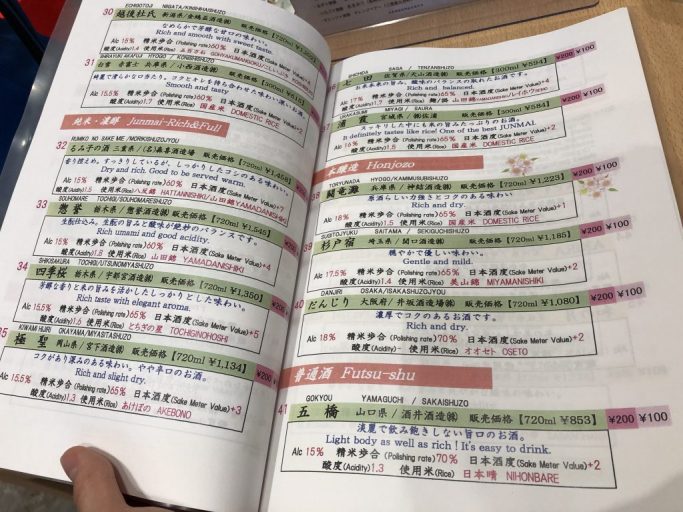 ECHIGOTOJI NIIGATA/KINSHIHAISHUZO
30 越後杜氏 新潟県/金鵄盃酒造㈱ 販売価格【720ml
なめらかで芳醇な甘口の味わい。
Rich and smooth with sweet taste.
Alc 15% 精米歩合(Polishing rate)60% 日本酒度(Sake Meter Value)
酸度(Acidity)1.7 使用米(Rice)
31
Smooth and tasty
Alc 15.5% 精米歩合(Polishing rate)65% 日本酒度(Sake Meter Value)
酸度(Acidity)1.7 使用米(Rice) 国産米 DOMESTIC RICE
純米・濃醇 Junmai-Rich&Full
32 るみ子の酒 三重県/(名)森喜酒造場 販売価格【720ml ¥1,458】
Dry and rich. Good to be served warm.
Alc 15% 精米歩合(Polishing rate)60% 日本酒度(Sake Meter Value)
酸度(Acidity)1.9 使用米(Rice)八反錦 HATTANNISHIKI/山田錦YAMADANISHIKI
SOUHOMARE TOCHIGI/SOUHOMARESHUZO
33 惣誉 栃木県/惣誉酒造㈱ 販売価格【720ml ¥1,545】
生酛仕込み。生酛の旨みと酸味が絶妙のバランスです。
Rich umami and good acidity.
Alc 15% 精米歩合(Polishing rate)60% 日本酒度(Sake Meter Value)+4
酸度(Acidity)1.7 使用米(Rice) 山田錦 YAMADANISHIKI
SHIKISAKURA TOCHIGI/UTSUNOMIYASHUZO
34 四季桜 栃木県/宇都宮酒造㈱ 販売価格【720ml ¥1,350】
芳醇な香りと米の旨みを活かしたしっかりとした味わい。
Rich taste with elegant aroma.
Alc 15.5% 精米歩合(Polishing rate)65% 日本酒度(Sake Meter Value)+5
酸度(Acidity)1.6 使用米(Rice) とちぎの星 TOCHIGINOHOSHI
KIWAMI HIJIRI OKAYAMA/MIYASITASHUZO
35 極聖 岡山県/宮下酒造㈱ 販売価格【720ml ¥1,134】
コクがあり深みのある味わい。やや辛口のお酒。
Rich and slight dry.
Alc 15.5% 精米歩合(Polishing rate)65% 日本酒度(Sake Meter Value)+3
酸度(Acidity)1.3 使用米(Rice) あけぼの AKEBONO
SAGA / TENZANSHUZO
七田 佐賀県/天山酒造㈱ 販売価格【300ml ¥594】 ¥200 ¥100
Rich and balanced.
Alc 17% 精米歩合(Polishing rate)65% 日本酒度(Sake Meter Value)
URAKASUMI MIYAGI / SAURA
宮城県/㈱佐浦 販売価格【300ml ¥584】 ¥200 ¥100
It definitely tastes like rice! One of the best JUNMAI
Alc 15% 精米歩合(Polishing rate)65% 日本酒度(Sake Meter Value)
使用米(Rice) 国産米 DOMESTIC RICE
本醸造 Honjozo
HYOGO/KAMMUSUBISHUZO
38 闘竜灘 兵庫県/神結酒造㈱ 販売価格【720ml ¥1,223】 ¥200 ¥100
原酒らしい力強さとコクのある味わい。
Rich and dry.
Alc 18% 精米歩合(Polishing rate)65% 日本酒度(Sake Meter Value)
SUGITOJYUKU SAITAMA / SEKIGUCHISHUZO
39 杉戸宿 埼玉県/関口酒造㈱ 販売価格【720ml ¥1,185】 ¥200 ¥100
穏やかで優しい味わい。
Gentle and mild.
Alc 17.5% 精米歩合(Polishing rate)65% 日本酒度(Sake Meter Value)+3
酸度(Acidity)1.5 使用米(Rice) 美山錦 MIYAMANISHIKI
DANJIRI OSAKA/IZAKASHUZOJYOU
40 だんじり 大阪府/井坂酒造場㈱ 販売価格【720ml ¥1,080】 ¥200 ¥100
濃厚でコクのあるお酒です。
Rich and dry.
Alc 15% 精米歩合(Polishing rate)70% 日本酒度(Sake Meter Value)+2
酸度(Acidity)- 使用米(Rice) オオセト OSETO
普通酒 Futsu-shu
GOKYOU YAMAGUCHI / SAKAISHUZO
41 五橋 山口県/酒井酒造㈱ 販売価格【720ml ¥853】 ¥200 ¥100
淡麗で飲み飽きしない旨口のお酒。
Light body as well as rich ! It's easy to drink.
Alc 15% 精米歩合(Polishing rate)70% 日本酒度(Sake Meter Value)+2
酸度(Acidity)1.3 使用米(Rice) 日本晴 NIHONBARE